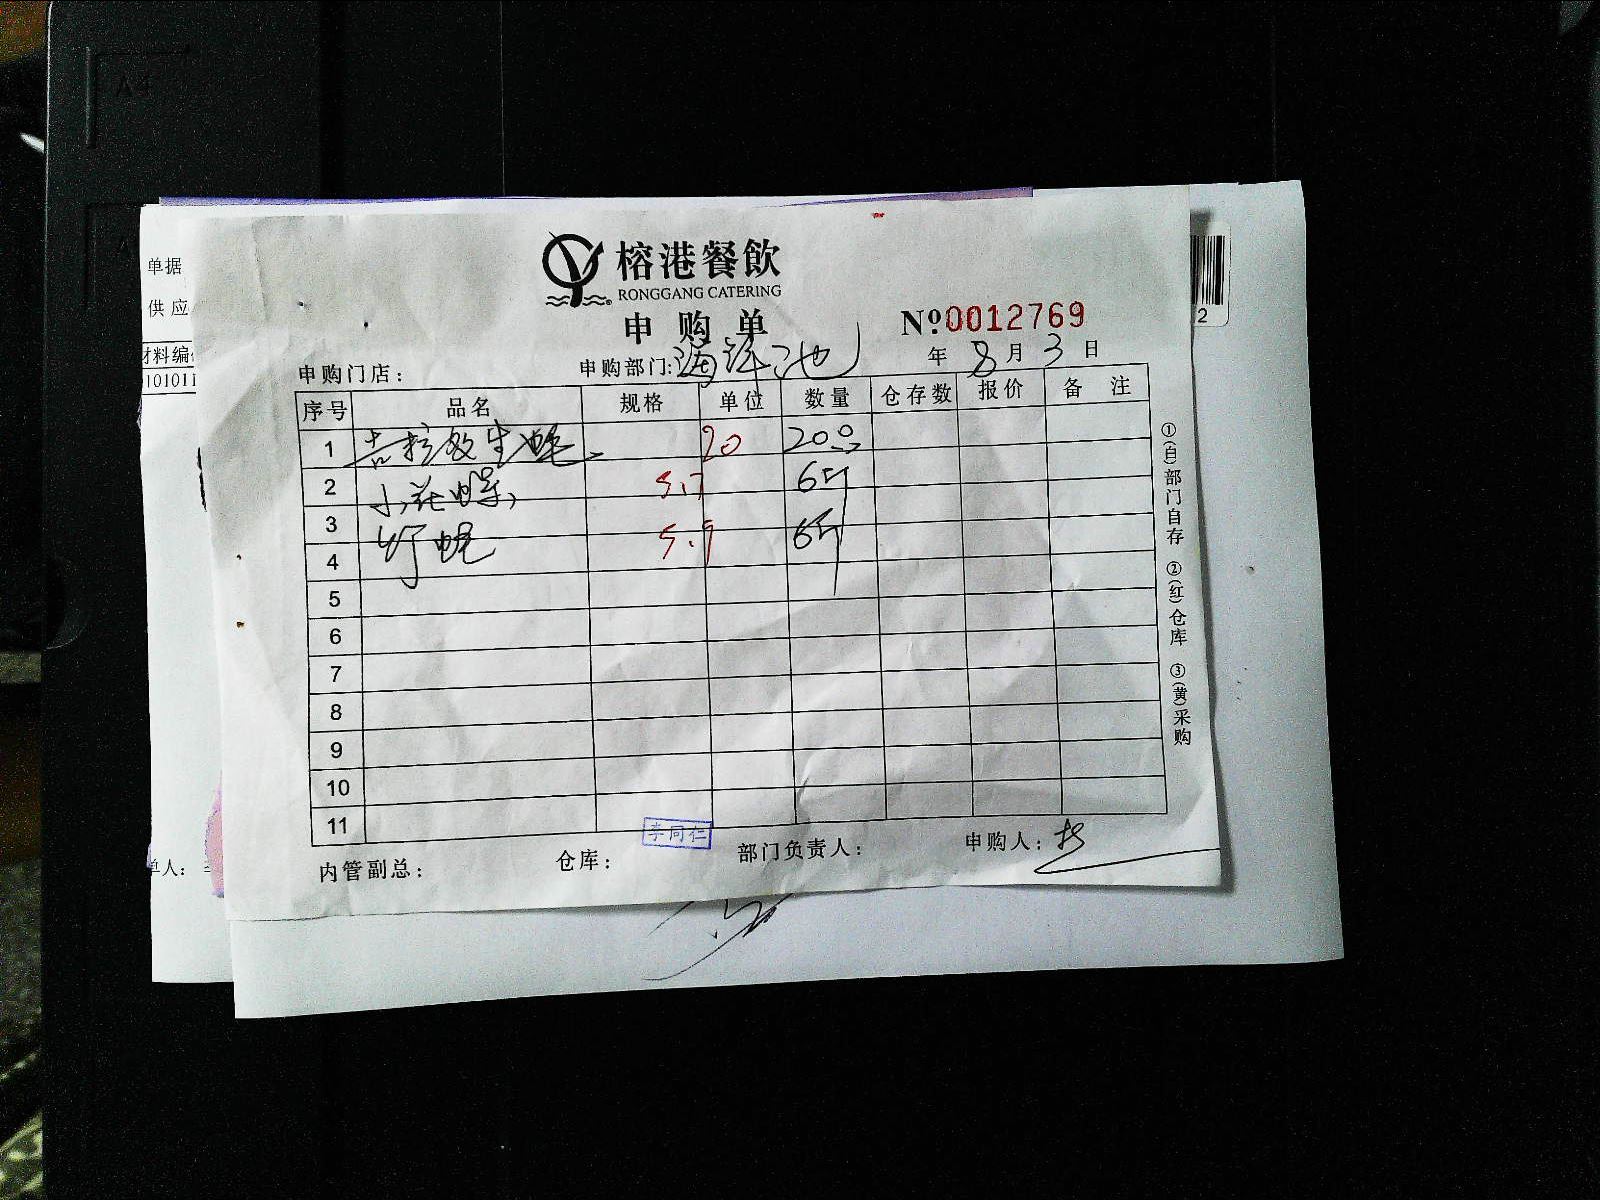 榕港餐飲
RONGGANG CATERING
申购单
№0012769
申购门店： 申购部门:海洋池 年 8 月 3 日
序号 品名 规格 单位 数量 仓存数 报价 备 注
1 吉拉多生蚝 20 20只
2 小花螺 5.7 6斤
3
4 5.9 6斤
5
6
7
8
9
10
11
内管副总： 仓库： 李同仁 部门负责人： 申购人：
①(自)部门自存 ②(红)仓库 ③(黄)采购
单据
供应
材料编
101011
单人：
2